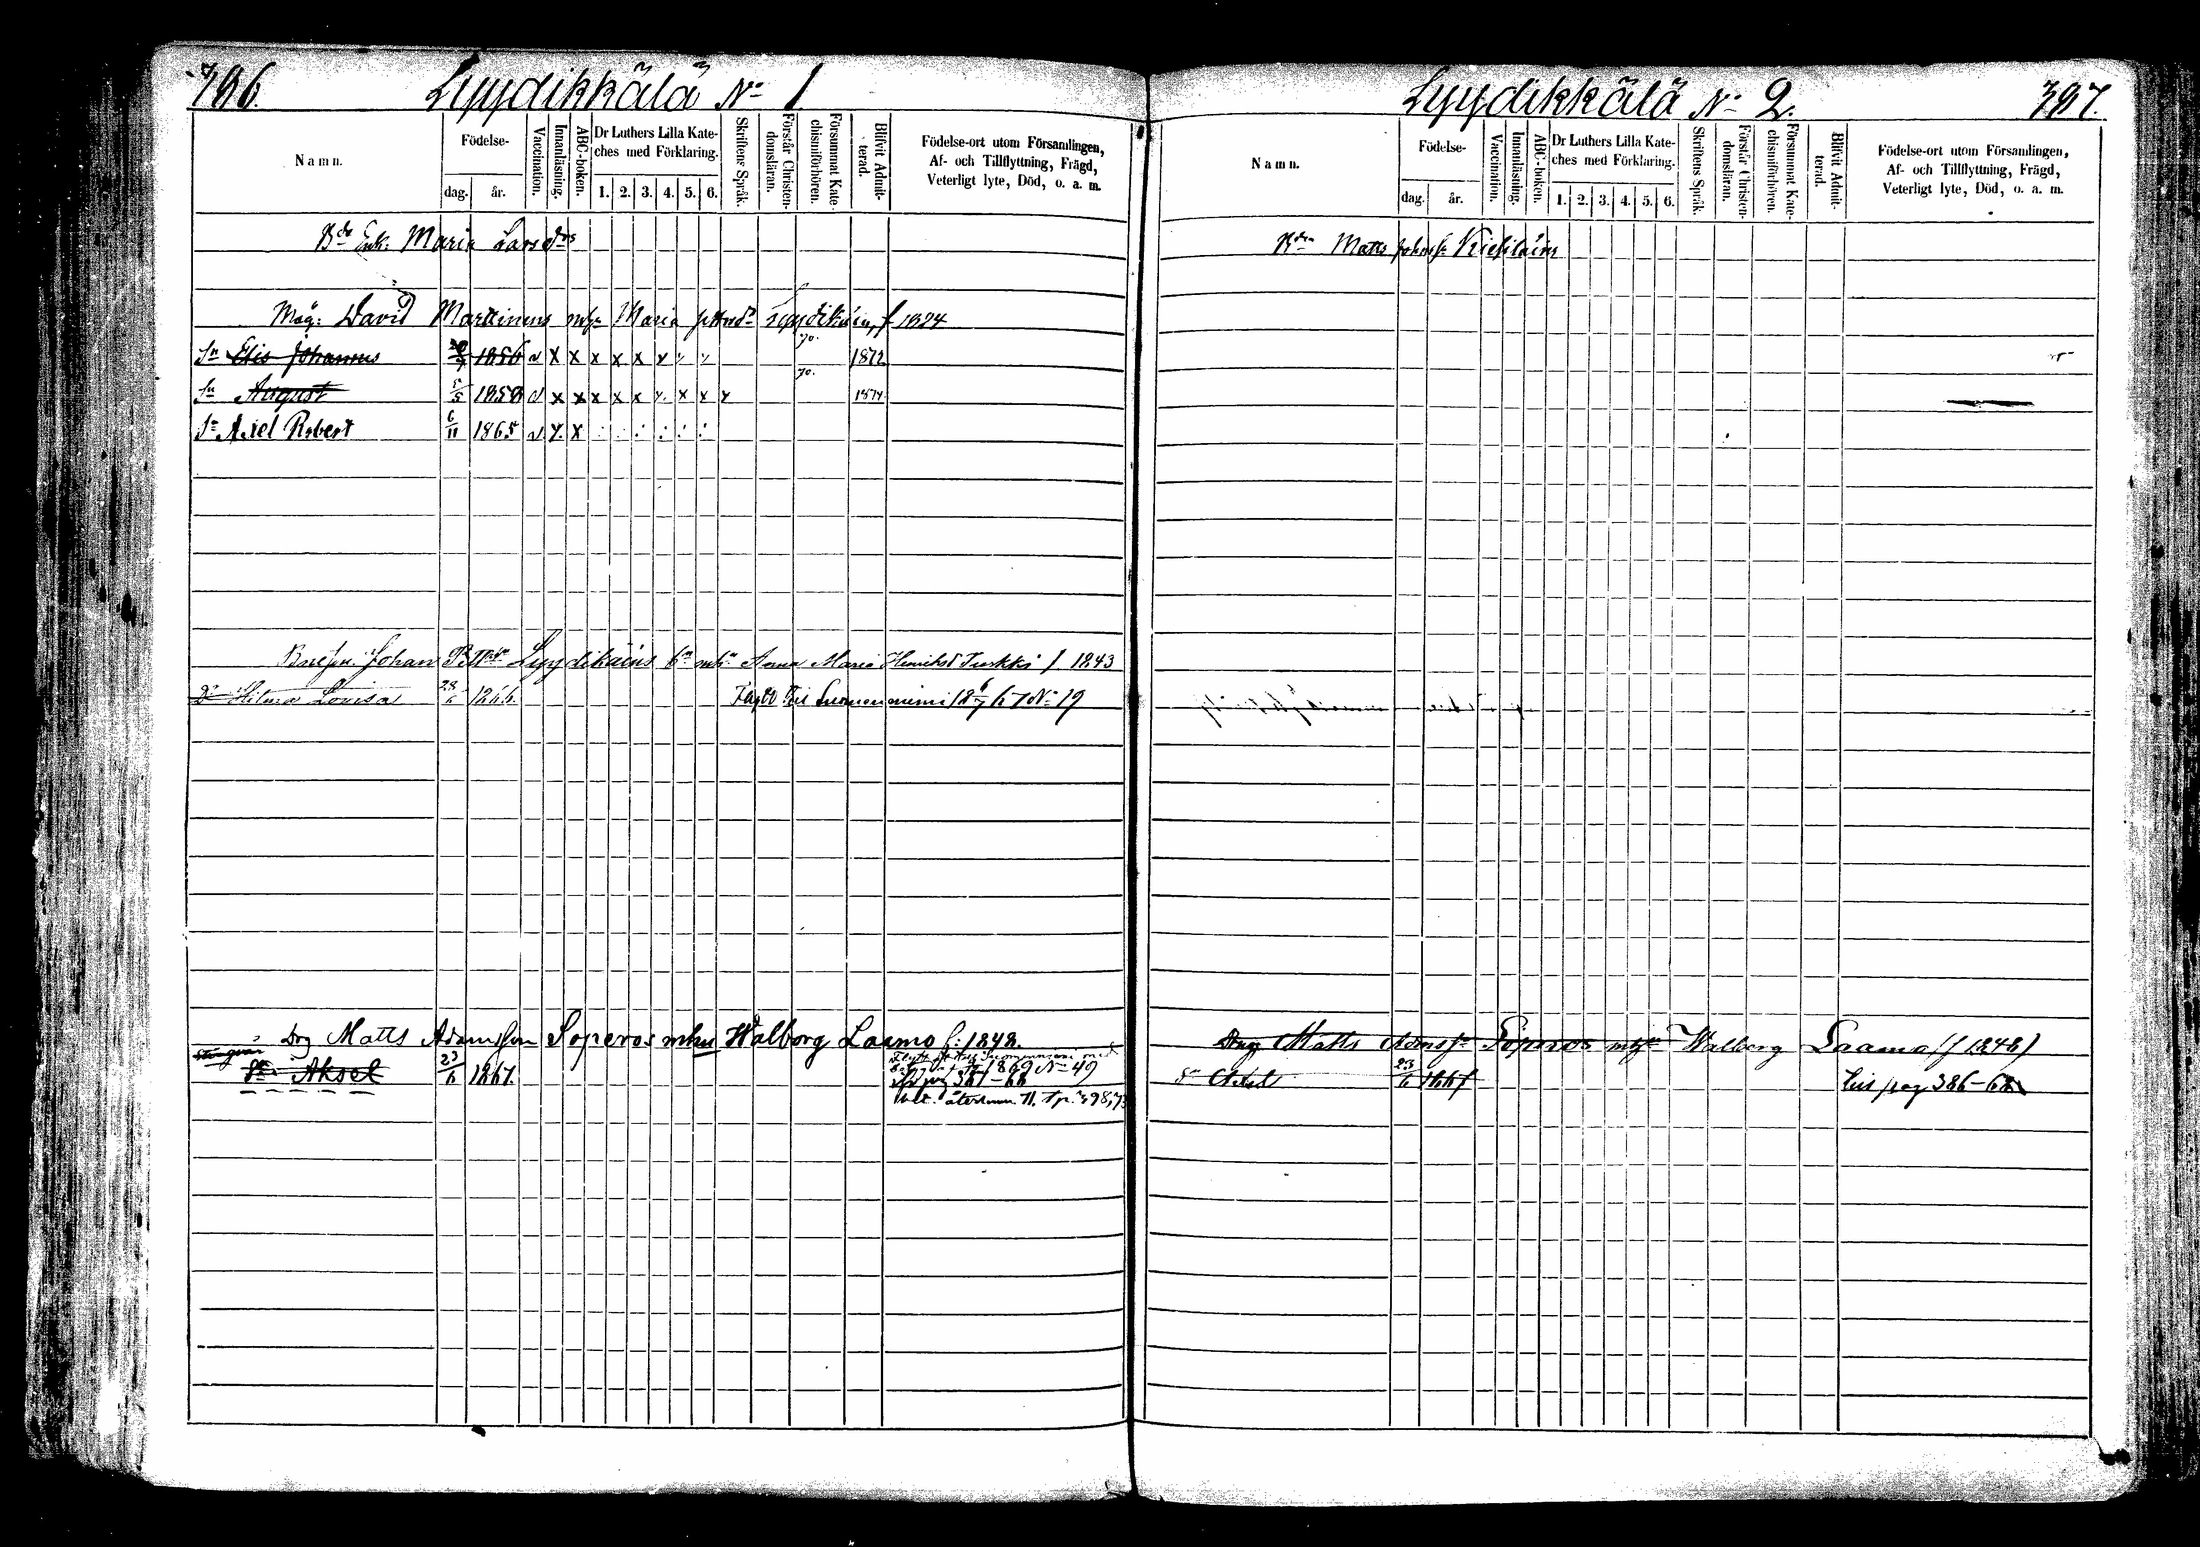 396. Lyydikkälä No 1
Namn.
Födelse-
dag. år.
Vaccination.
Innanläsning.
ABC-boken.
Dr Luthers Lilla Kate-
ches med Förklaring.
1. 2. 3. 4. 5. 6.
Skriftens Språk.
Förstår Christen-
domsläran.
Försummat Kate-
chismiförhören.
Blifvit Admit-
terad.
Födelse-ort utom Församlingen,
Af- och Tillflyttning, Frägd,
Veterligt lyte, Död, o. a. m.
Bde Enk: Maria Larsdrs
Måg: David Marttinens Maria f 1824
Sn Elis Johannes 1856 v x x x x x x 1872
Sn August 5/5 1858 v x x x x x x x x x 1874
Sn Axel Robert 6/11 1865 v x x
Johan Lyydikäins Anna Maria Henriksd Turkki f 1843
Dr Hilma Lovisa 1866 Suomenniemi No 19
Drg Matts Adamsson Soperos mhu Walborg Laamo f: 1848.
Sn Aksel 23/6 1867.
1869 No 49
pag 387-68
397. Lyydikkälä No 2.
Namn.
Födelse-
dag. år.
Vaccination.
Innanläsning.
ABC-boken.
Dr Luthers Lilla Kate-
ches med Förklaring.
1. 2. 3. 4. 5. 6.
Skriftens Språk.
Förstår Christen-
domsläran.
Försummat Kate-
chismiförhören.
Blifvit Admit-
terad.
Födelse-ort utom Församlingen,
Af- och Tillflyttning, Frägd,
Veterligt lyte, Död, o. a. m.
Matts Johnss
Drg Matts Adamss Soperos Walborg Laamo (f 1848)
Sn Axel 23/6 1867 pag 386-68